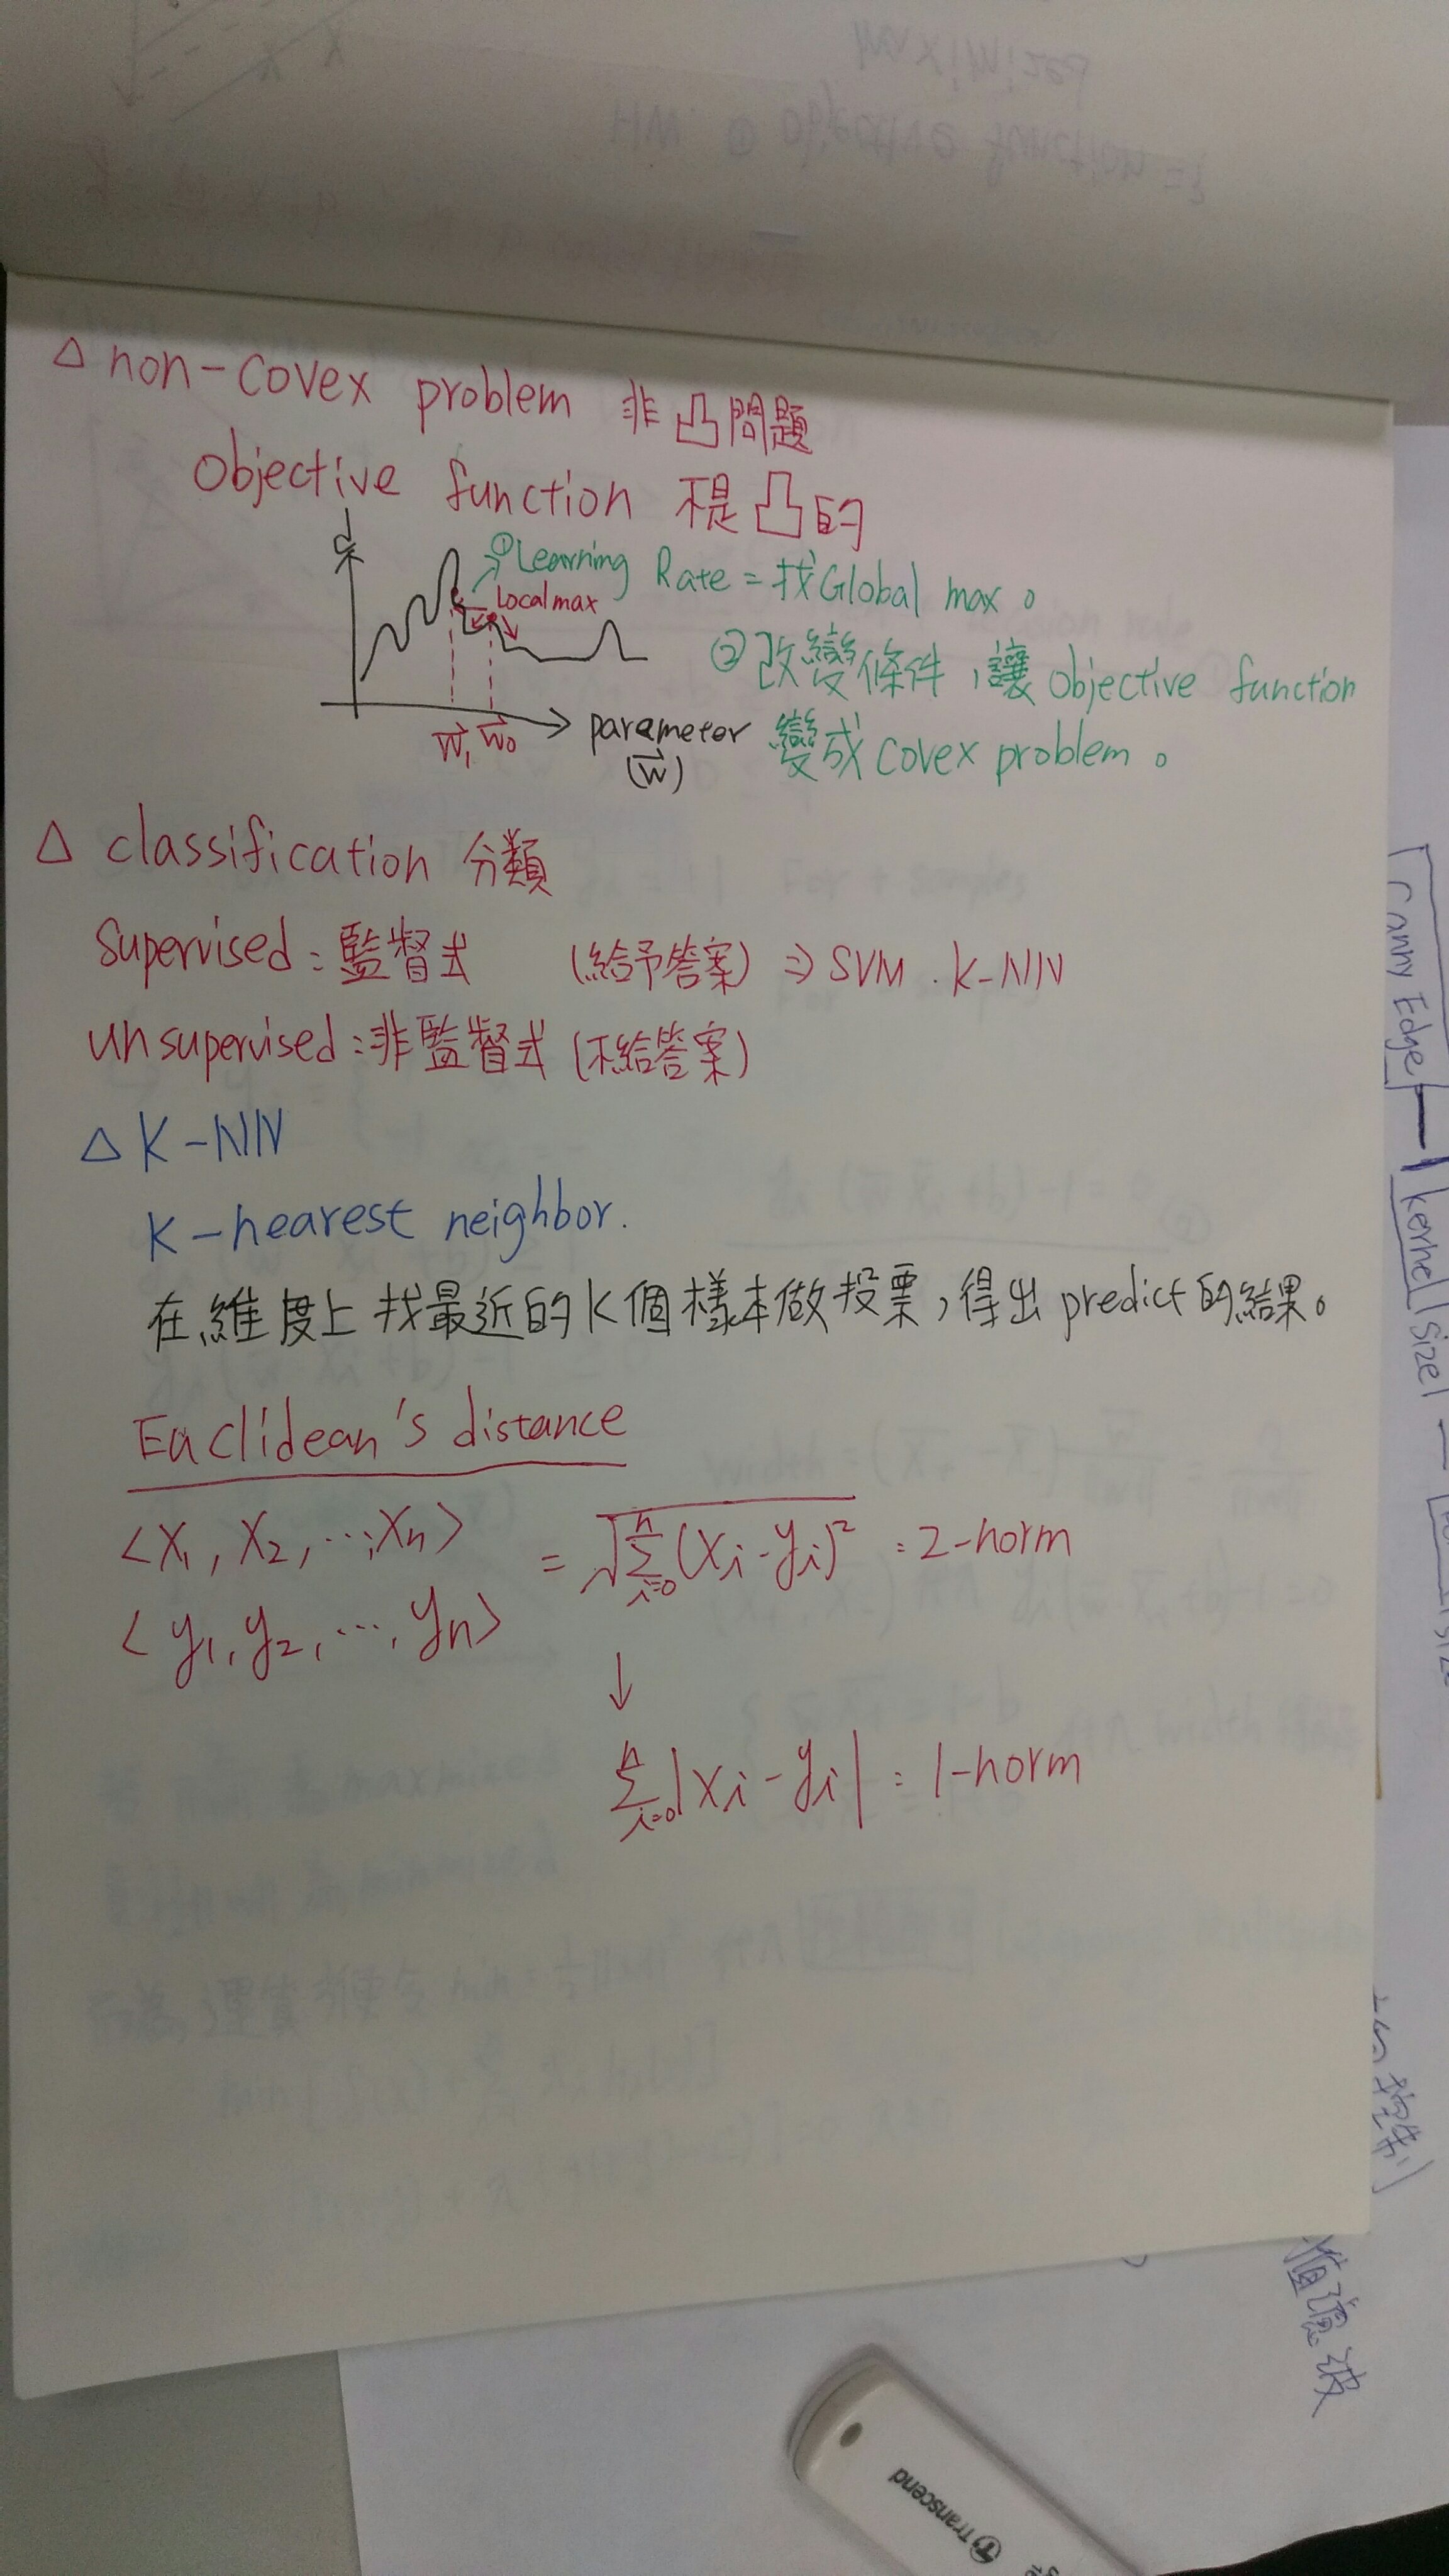 △ non-covex problem 非凸問題
Objective function 不是凸的
d
①Learning Rate = 找Global max。
Local max
②改變條件,讓objective function
變成covex problem。
W₁ W₀
parameter
(W)
△ classification 分類
Supervised:監督式 (給予答案) ⇒ SVM . K-NN
unsupervised:非監督式 (不給答案)
△ K-NN
K-nearest neighbor.
在維度上找最近的K個樣本做投票,得出predict的結果。
Euclidean's distance
<X₁, X₂, ..., Xn> = √Σⁿi=0(Xi-yi)² : 2-norm
<y₁, y₂, ..., yn>
↓
Σⁿi=0|xi-yi| : 1-norm
Canny Edge
kernel size
Transcend